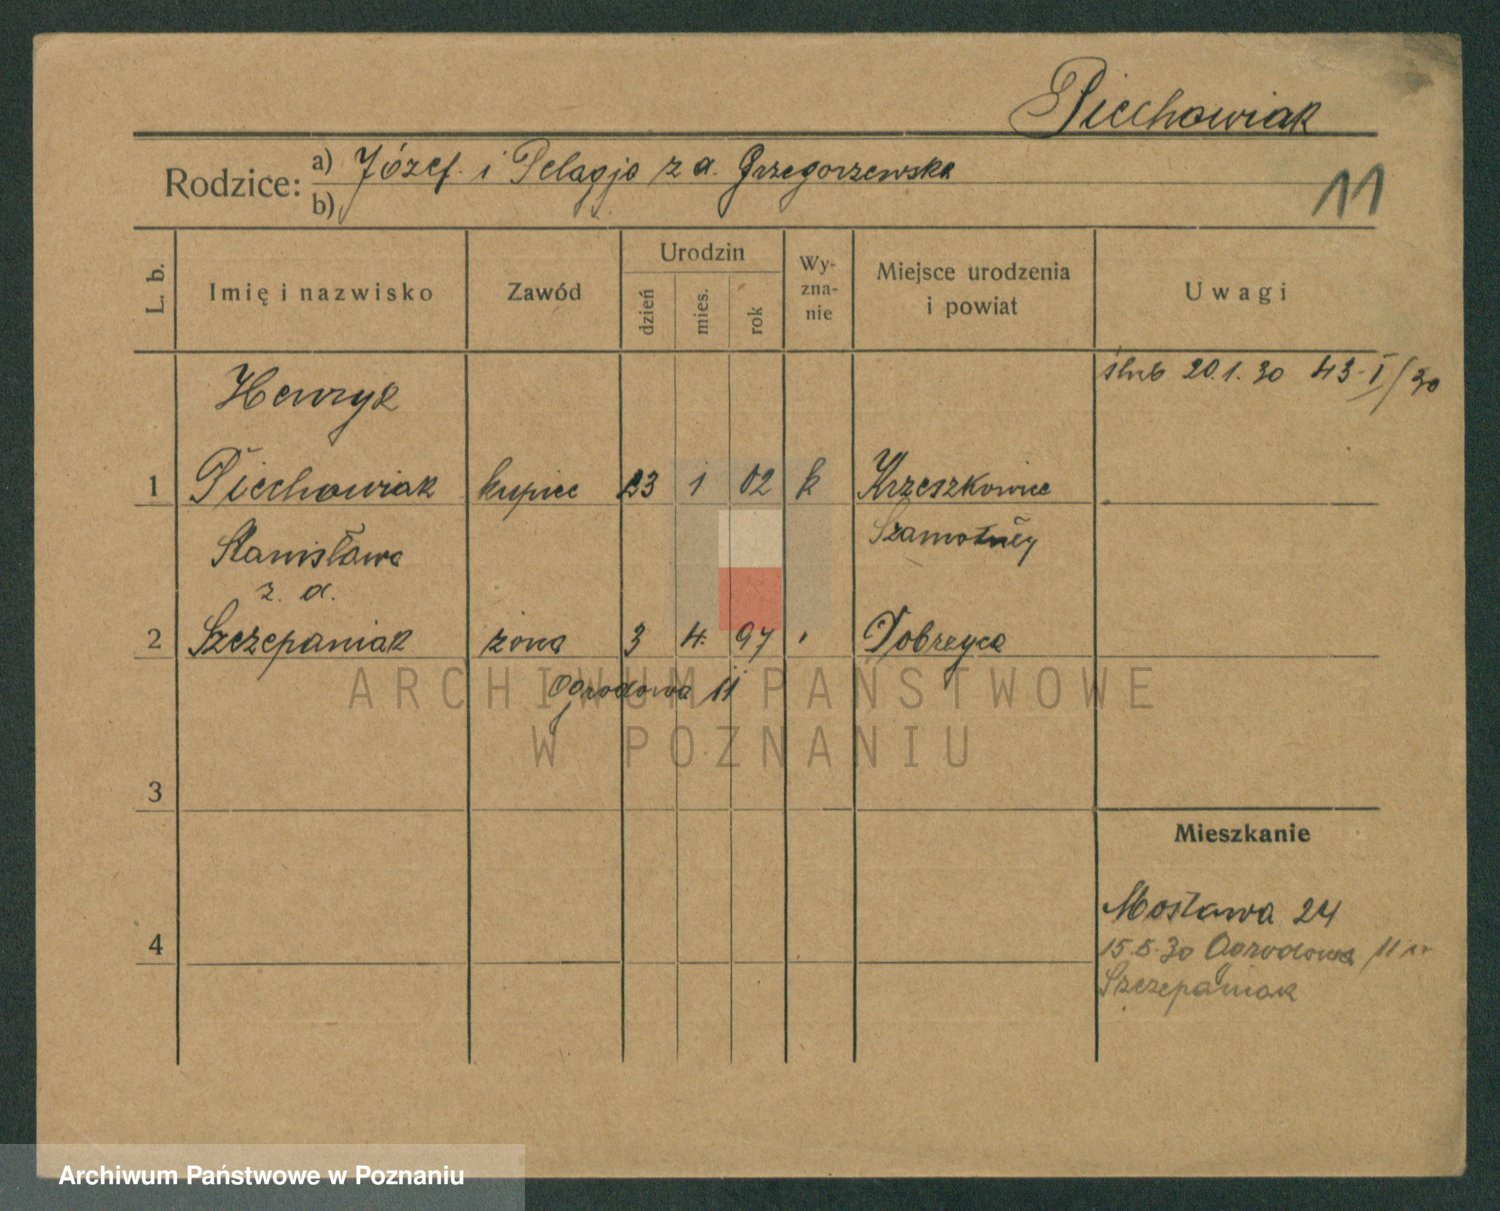 Piechowiak
Rodzice: a) Józef i Pelagja z d. Grzegorzewska
b)
11
L. b.
Imię i nazwisko
Zawód
Urodzin
dzień
mies.
rok
Wy-
zna-
nie
Miejsce urodzenia
i powiat
Uwagi
ślub 20.1.30 43-I/30
Henryk
1 Piechowiak kupiec 23 1 02 k Krzeszkowice
Szamotuły
Stanisława
z. d.
2 Szczepaniak żona 3 4. 97 " Dobrzyca
Ogrodowa 11
3
4
Mieszkanie
Mostowa 24
15.5.30 Ogrodowa 11
Szczepaniak
ARCHIWUM PAŃSTWOWE
W POZNANIU
Archiwum Państwowe w Poznaniu